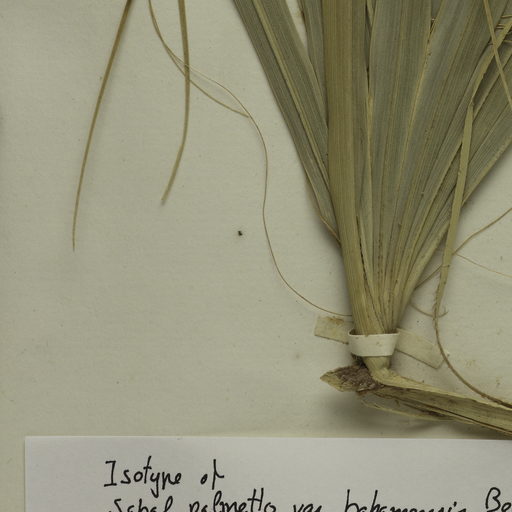 Isotype of
Sabal palmetto var bahamensis Be